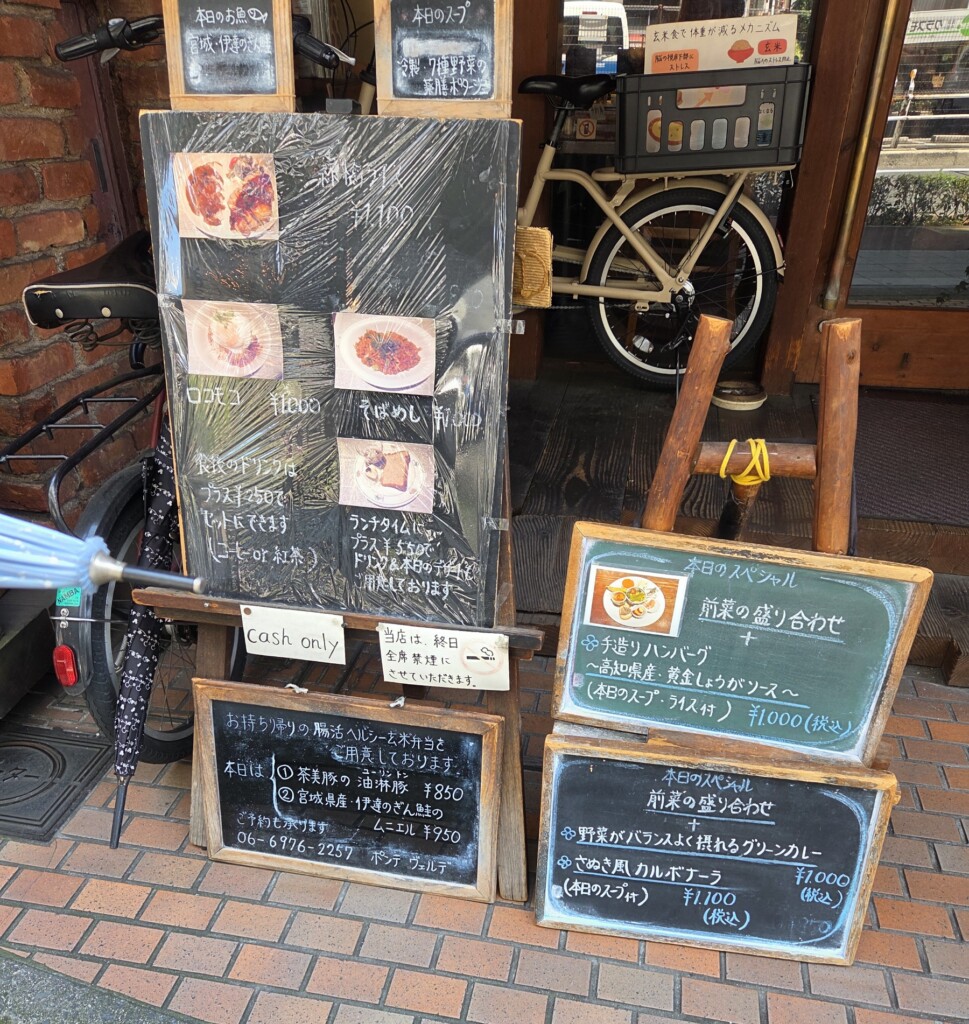 本日のお魚
宮城・伊達のぎん鮭
本日のスープ
冷製・7種野菜の
薬膳ポタージュ
玄米食で体重が減るメカニズム
玄米
¥1100
ロコモコ ¥1000
そばめし
食後のドリンクは
プラス¥250で
セットにできます
(コーヒーor紅茶)
ランチタイムに
プラス¥550で
ドリンク&本日のデザートも
ご用意しております
cash only
当店は、終日
全席禁煙に
させていただきます。
お持ち帰りの腸活ヘルシー玄米弁当を
ご用意しております
本日は
① 茶美豚の油淋豚 ¥850
ユーリントン
② 宮城県産・伊達のぎん鮭の
ムニエル ¥950
ご予約も承ります
06-6976-2257 ポンテ ヴェルデ
本日のスペシャル
前菜の盛り合わせ
+
手造りハンバーグ
〜高知県産・黄金しょうがソース〜
(本日のスープ・ライス付) ¥1000(税込)
本日のスペシャル
前菜の盛り合わせ
+
野菜がバランスよく摂れるグリーンカレー
¥1.000
(税込)
さぬき風カルボナーラ
(本日のスープ付) ¥1.100
(税込)